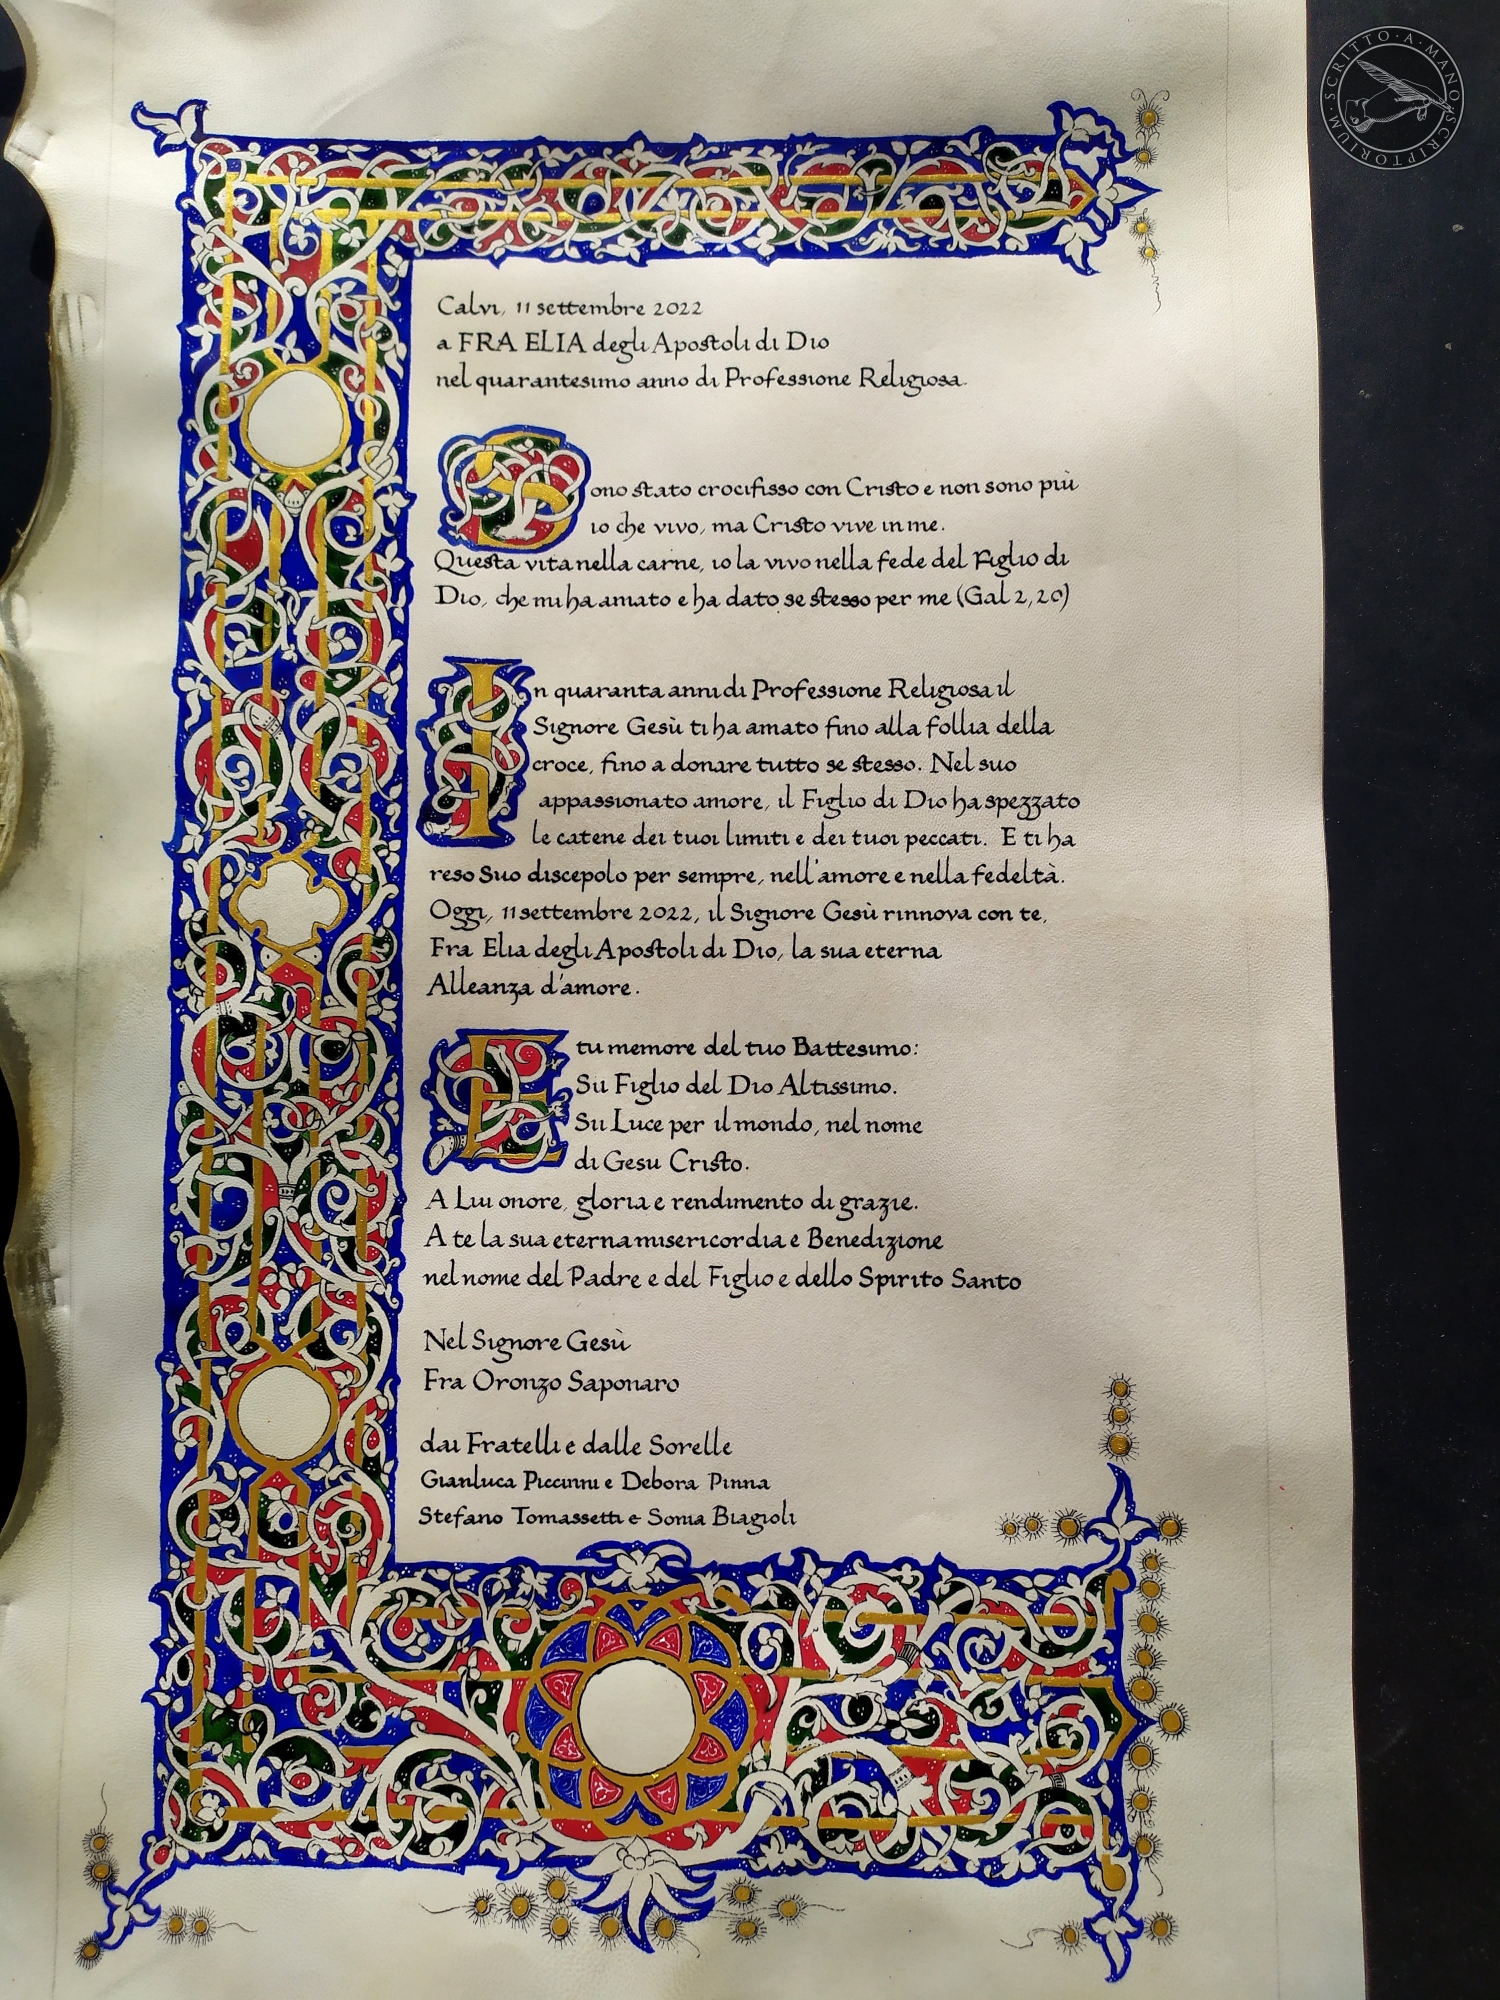 SCRITTO·A·MANO·SCRIPTORIUM·
Calvi, 11 settembre 2022
a FRA ELIA degli Apostoli di Dio
nel quarantesimo anno di Professione Religiosa.
Sono stato crocifisso con Cristo e non sono più
io che vivo, ma Cristo vive in me.
Questa vita nella carne, io la vivo nella fede del Figlio di
Dio, che mi ha amato e ha dato se stesso per me (Gal 2,20)
In quaranta anni di Professione Religiosa il
Signore Gesù ti ha amato fino alla follia della
croce, fino a donare tutto se stesso. Nel suo
appassionato amore, il Figlio di Dio ha spezzato
le catene dei tuoi limiti e dei tuoi peccati. E ti ha
reso Suo discepolo per sempre, nell'amore e nella fedeltà.
Oggi, 11 settembre 2022, il Signore Gesù rinnova con te,
Fra Elia degli Apostoli di Dio, la sua eterna
Alleanza d'amore.
E tu memore del tuo Battesimo:
Sii Figlio del Dio Altissimo.
Sii Luce per il mondo, nel nome
di Gesu Cristo.
A Lui onore, gloria e rendimento di grazie.
A te la sua eterna misericordia e Benedizione
nel nome del Padre e del Figlio e dello Spirito Santo
Nel Signore Gesù
Fra Oronzo Saponaro
dai Fratelli e dalle Sorelle
Gianluca Piccinni e Debora Pinna
Stefano Tomassetti e Sonia Biagioli